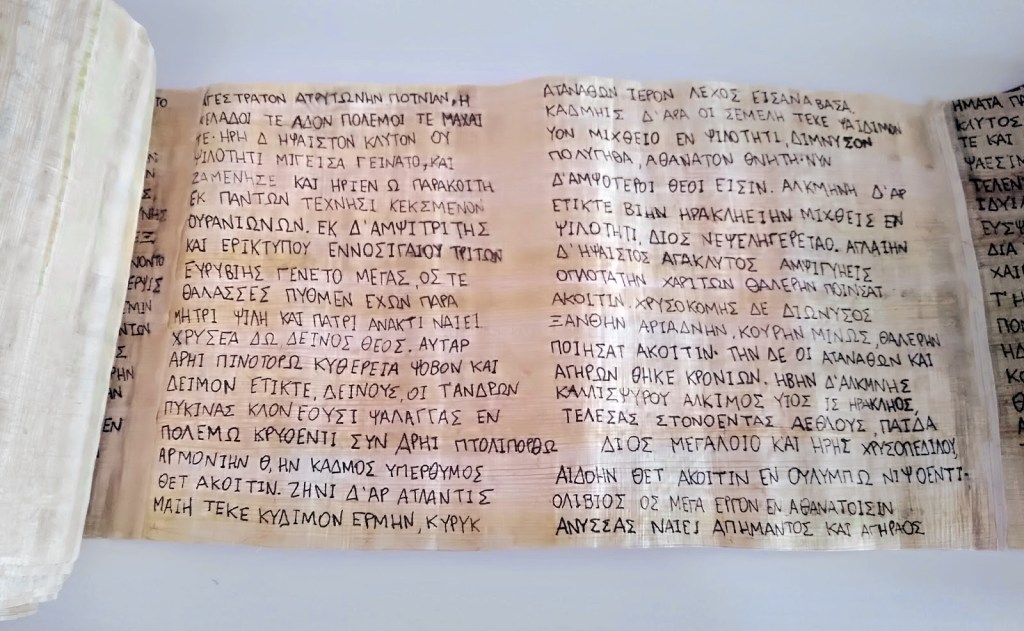 ΓΕΣΤΡΑΤΟΝ ΑΤΡΥΤΩΝΗΝ ΠΟΤΝΙΑΝ, Η
ΚΕΛΑΔΟΙ ΤΕ ΑΔΟΝ ΠΟΛΕΜΟΙ ΤΕ ΜΑΧΑΙ
ΤΕ· ΗΡΗ Δ ΗΨΑΙΣΤΟΝ ΚΛΥΤΟΝ ΟΥ
ΨΙΛΟΤΗΤΙ ΜΙΓΕΙΣΑ ΓΕΙΝΑΤΟ, ΚΑΙ
ΖΑΜΕΝΗΣΕ ΚΑΙ ΗΡΙΣΕΝ Ω ΠΑΡΑΚΟΙΤΗ
ΕΚ ΠΑΝΤΩΝ ΤΕΧΝΗΣΙ ΚΕΚΣΜΕΝΟΝ
ΟΥΡΑΝΙΩΝΩΝ. ΕΚ Δ'ΑΜΨΙΤΡΙΤΗΣ
ΚΑΙ ΕΡΙΚΤΥΠΟΥ ΕΝΝΟΣΙΓΑΙΟΥ ΤΡΙΤΩΝ
ΕΥΡΥΒΙΗΣ ΓΕΝΕΤΟ ΜΕΓΑΣ, ΟΣ ΤΕ
ΘΑΛΑΣΣΕΣ ΠΥΘΜΕΝ ΕΧΩΝ ΠΑΡΑ
ΜΗΤΡΙ ΨΙΛΗ ΚΑΙ ΠΑΤΡΙ ΑΝΑΚΤΙ ΝΑΙΕΙ
ΧΡΥΣΕΑ ΔΩ ΔΕΙΝΟΣ ΘΕΟΣ. ΑΥΤΑΡ
ΑΡΗΙ ΠΙΝΟΤΟΡΩ ΚΥΘΕΡΕΙΑ ΨΟΒΟΝ ΚΑΙ
ΔΕΙΜΟΝ ΕΤΙΚΤΕ, ΔΕΙΝΟΥΣ, ΟΙ Τ'ΑΝΔΡΩΝ
ΠΥΚΙΝΑΣ ΚΛΟΝΕΟΥΣΙ ΨΑΛΑΓΓΑΣ ΕΝ
ΠΟΛΕΜΩ ΚΡΥΘΕΝΤΙ ΣΥΝ ΑΡΗΙ ΠΤΟΛΙΠΟΡΘΩ
ΑΡΜΟΝΙΗΝ Θ, ΗΝ ΚΑΔΜΟΣ ΥΠΕΡΘΥΜΟΣ
ΘΕΤ ΑΚΟΙΤΙΝ. ΖΗΝΙ Δ'ΑΡ ΑΤΛΑΝΤΙΣ
ΜΑΙΗ ΤΕΚΕ ΚΥΔΙΜΟΝ ΕΡΜΗΝ, ΚΥΡΥΚ
ΑΤΑΝΑΘΩΝ ΙΕΡΟΝ ΛΕΧΟΣ ΕΙΣΑΝΑΒΑΣΑ.
ΚΑΔΜΗΙΣ Δ'ΑΡΑ ΟΙ ΣΕΜΕΛΗ ΤΕΚΕ ΨΑΙΔΙΜΟΝ
ΥΟΝ ΜΙΧΘΕΙΟ ΕΝ ΨΙΛΟΤΗΤΙ, ΔΙΜΝΥΣΟΝ
ΠΟΛΥΓΗΘΑ, ΑΘΑΝΑΤΟΝ ΘΝΗΤΗ· ΝΥΝ
Δ'ΑΜΨΟΤΕΡΟΙ ΘΕΟΙ ΕΙΣΙΝ. ΑΛΚΜΗΝΗ Δ'ΑΡ
ΕΤΙΚΤΕ ΒΙΗΝ ΗΡΑΚΛΗΕΙΗΝ ΜΙΧΘΕΙΣ ΕΝ
ΨΙΛΟΤΗΤΙ, ΔΙΟΣ ΝΕΨΕΛΗΓΕΡΕΤΑΟ. ΑΓΛΑΙΗΝ
Δ'ΗΨΑΙΣΤΟΣ ΑΓΑΚΛΥΤΟΣ ΑΜΨΙΓΥΗΕΙΣ
ΟΠΛΟΤΑΤΗΝ ΧΑΡΙΤΩΝ ΘΑΛΕΡΗΝ ΠΟΙΝΣΑΤ
ΑΚΟΙΤΙΝ. ΧΡΥΣΟΚΟΜΗΣ ΔΕ ΔΙΩΝΥΣΟΣ
ΞΑΝΘΗΝ ΑΡΙΑΔΝΗΝ, ΚΟΥΡΗΝ ΜΙΝΩΣ, ΘΑΛΕΡΗΝ
ΠΟΙΗΣΑΤ ΑΚΟΙΤΙΝ· ΤΗΝ ΔΕ ΟΙ ΑΤΑΝΑΘΩΝ ΚΑΙ
ΑΓΗΡΩΝ ΘΗΚΕ ΚΡΟΝΙΩΝ. ΗΒΗΝ Δ'ΑΛΚΜΝΗΣ
ΚΑΛΛΙΣΨΥΡΟΥ ΑΛΚΙΜΟΣ ΥΙΟΣ ΙΣ ΗΡΑΚΛΗΟΣ,
ΤΕΛΕΣΑΣ ΣΤΟΝΟΕΝΤΑΣ ΑΕΘΛΟΥΣ, ΠΑΙΔΑ
ΔΙΟΣ ΜΕΓΑΛΟΙΟ ΚΑΙ ΗΡΗΣ ΧΡΥΣΟΠΕΔΙΛΟΥ,
ΑΙΔΟΗΝ ΘΕΤ ΑΚΟΙΤΙΝ ΕΝ ΟΥΛΥΜΠΩ ΝΙΨΟΕΝΤΙ·
ΟΛΙΒΙΟΣ ΟΣ ΜΕΓΑ ΕΡΓΟΝ ΕΝ ΑΘΑΝΑΤΟΙΣΙΝ
ΑΝΥΣΣΑΣ ΝΑΙΕΙ ΑΠΗΜΑΝΤΟΣ ΚΑΙ ΑΓΗΡΑΟΣ
ΗΜΑΤΑ
ΚΛΥΤΟΣ
ΤΕ ΚΑΙ